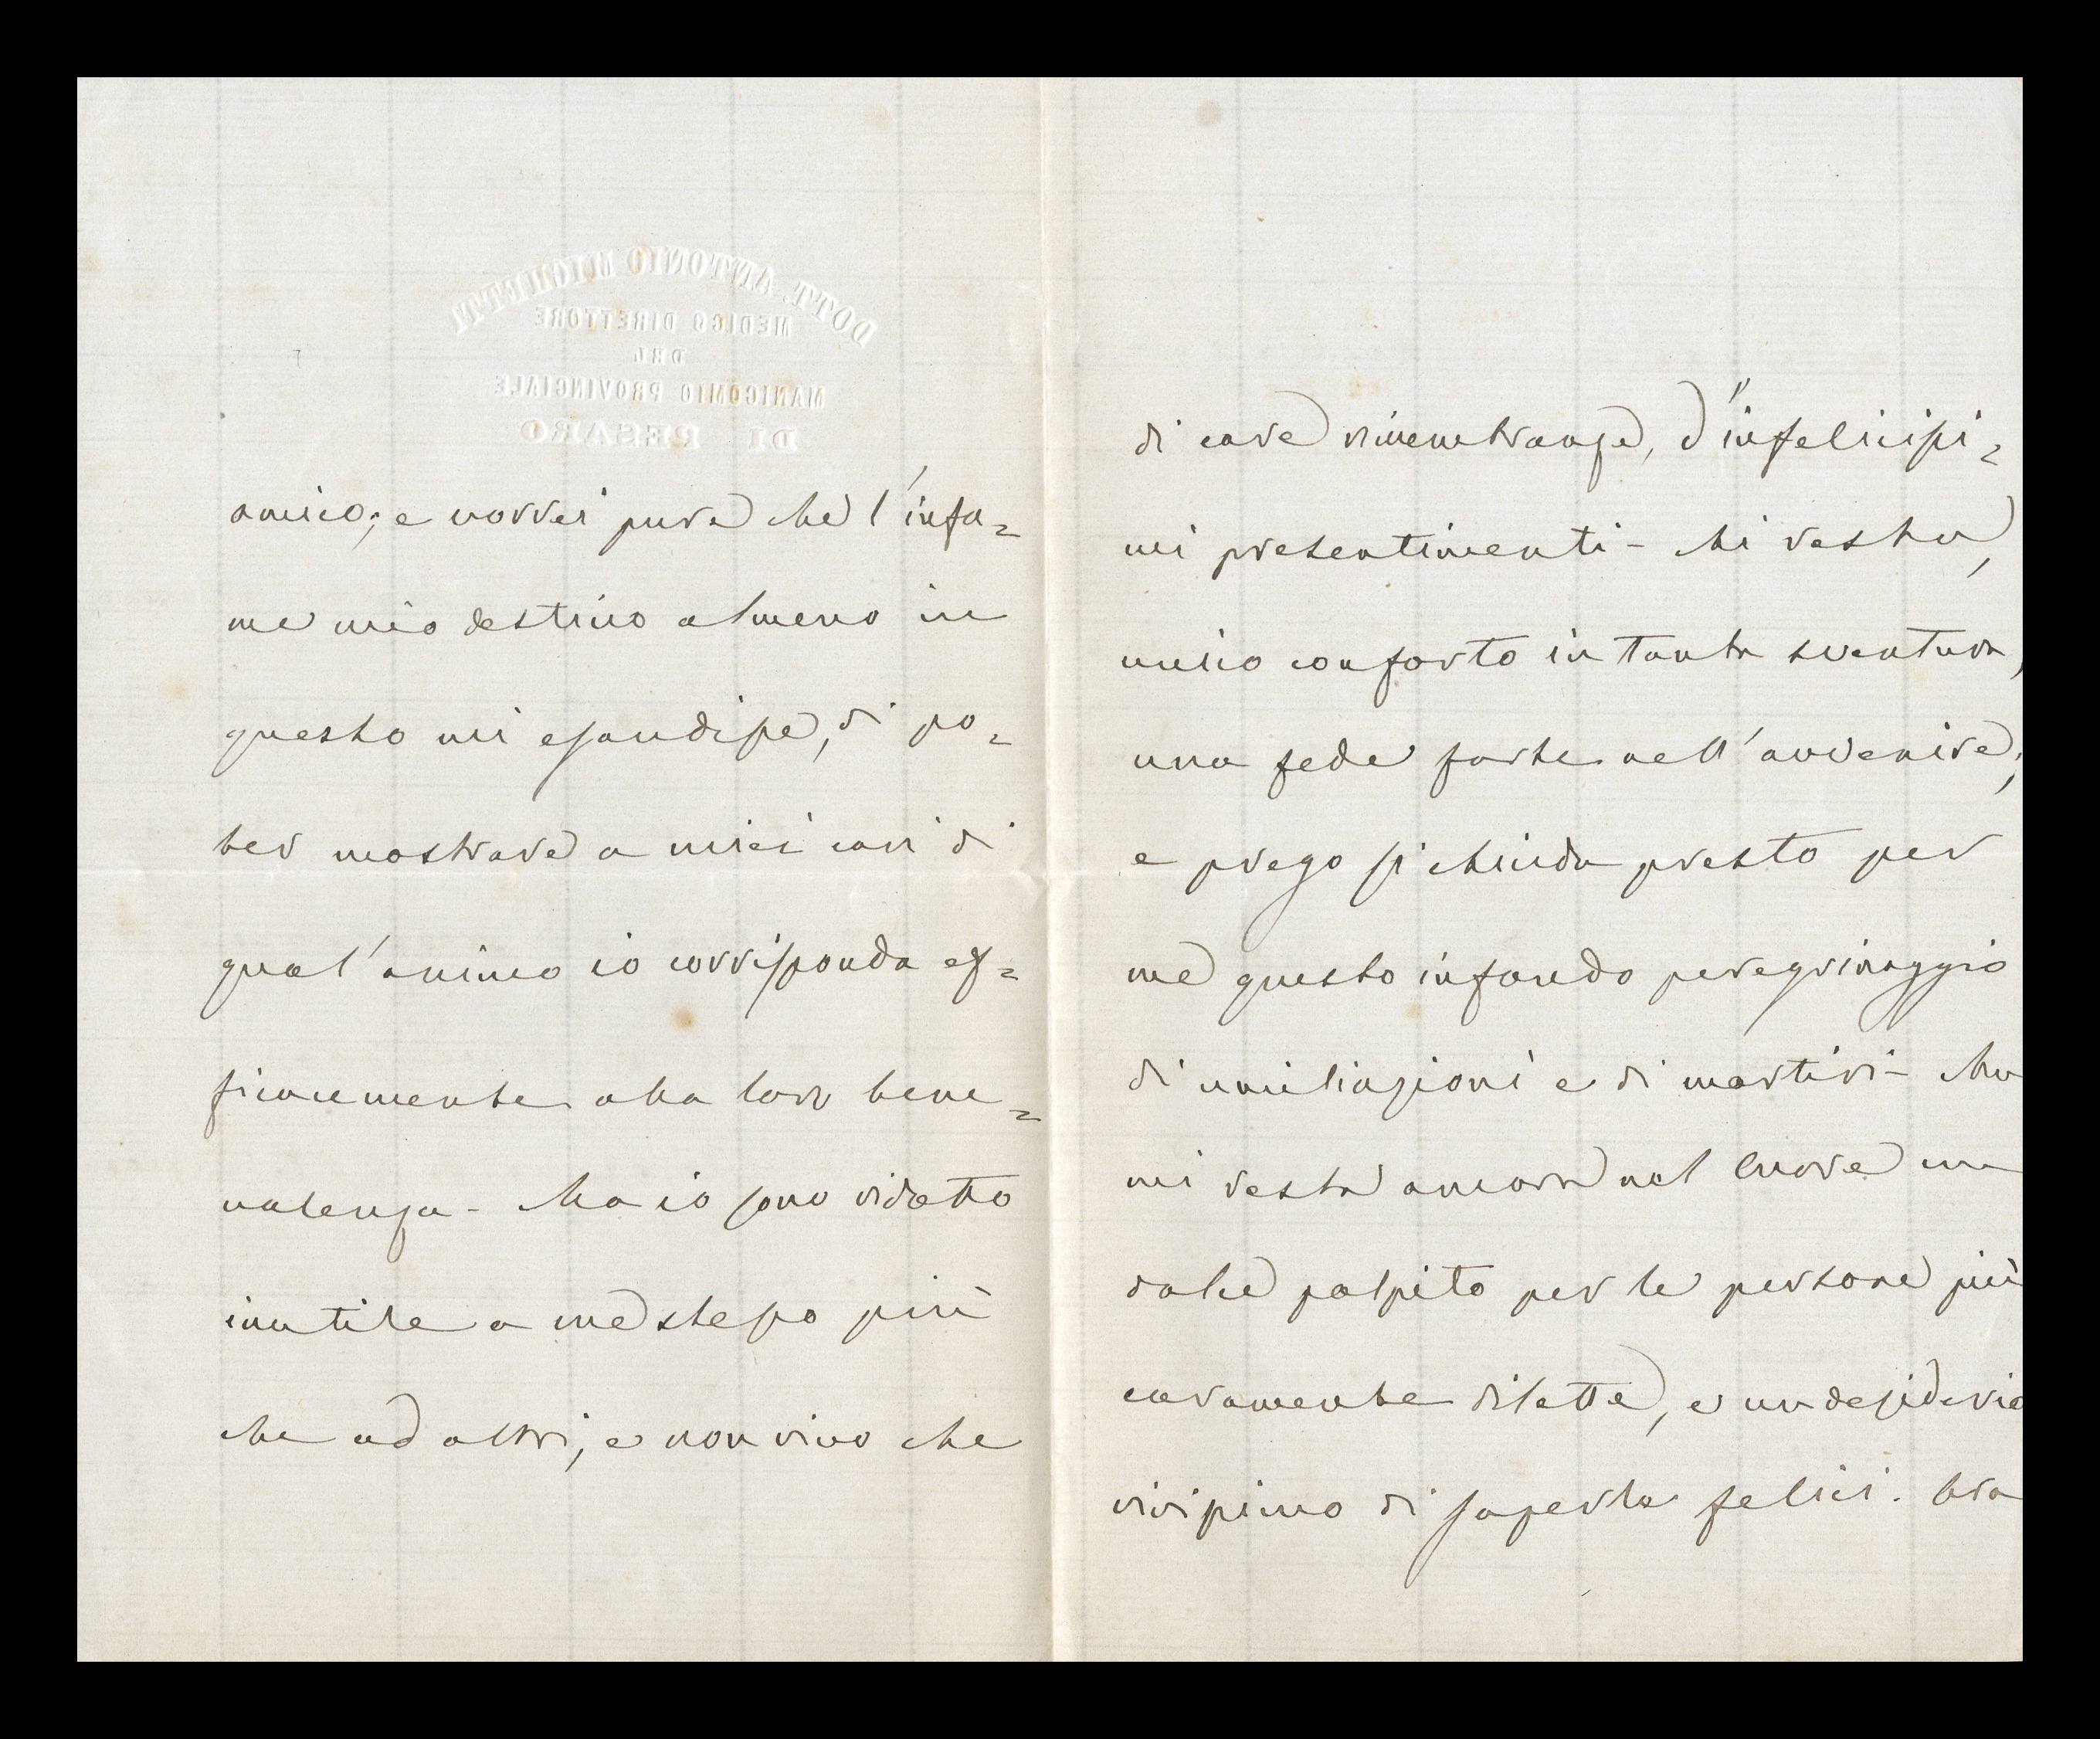 DOTT. ANTONIO MICHETTI
MEDICO DIRETTORE
DEL
MANICOMIO PROVINCIALE
DI PESARO
amico; e vorrei pure che l'infa=
me mio destino almeno in
questo mi esaudisse, di po=
ter mostrare a miei cari di
qual'animo io corrisponda ef=
ficacemente alla loro bene=
valenza - Ma io sono ridotto
inutile a me stesso più
che ad altri, e non vivo che
di care rimembranze, d'infelicissi=
mi presentimenti - Mi resta,
unico conforto in tanta sventura,
una fede forte nell'avvenire;
e prego si chiuda presto per
me questo infando peregrinaggio
di umiliazioni e di martiri - Ma
mi resta ancora nel cuore un
dolce palpito per le persone più
caramente dilette, e un desiderio
vivissimo di saperle felici. Era